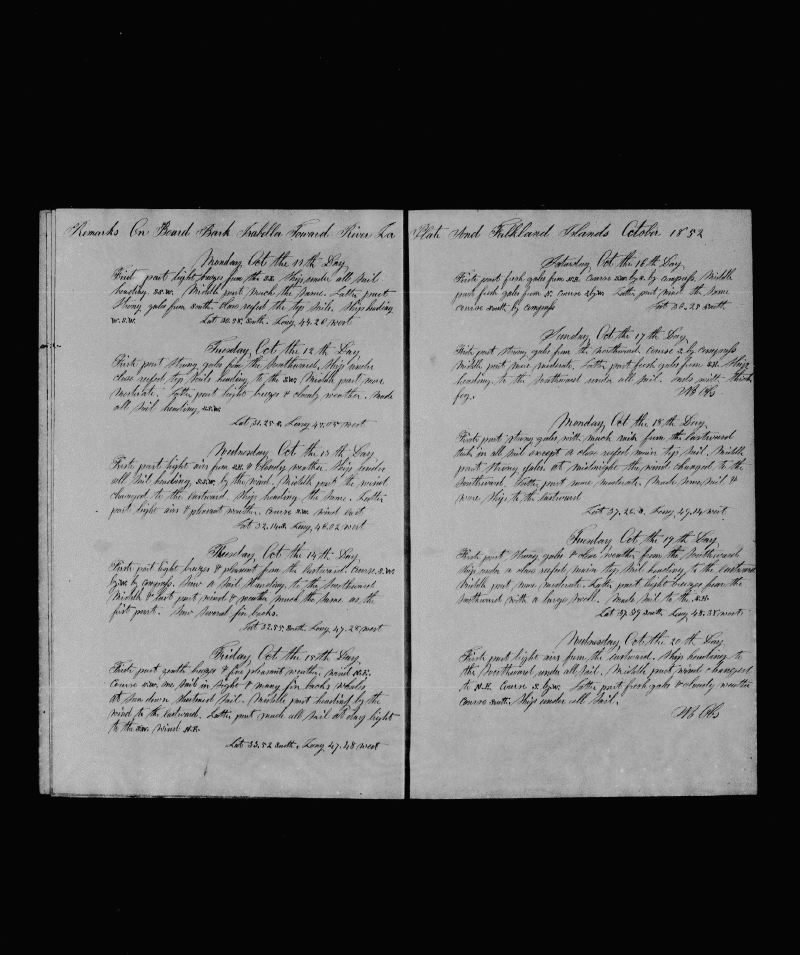 Remarks On Board Bark Isabella Toward River La
Monday Oct the 11th Day
Firste part light breges from the S.E. Ship under all sail
heading S.S.W. Middle part much the same. Latter part
strong gales from South close refest the top sails. Ship heading
W.S.W. Lat 30.58, South. Long 44.28 west
Tuesday, Oct the 12th Day
Firste part strong gales from the Southward, Ship under
close reefest top sails heading to the S.W. Middle part more
moderate. Latter part light breges & cloudy weather. Made
all sail heading S.S.W.
Lat 31.25 S. Long 45.05 west
Wednesday Oct the 13th Day
Firste part light airs from S.E. & Cloudy weather. Ship under
all sail heading S.S.W. by the wind. Middle part the wind
changed to the Eastward. Ship heading the same. Latter
part light airs & pleasant weather. Course S.W. wind East
Lat 32.14 S. Long 46.02 west
Thuesday, Oct the 14th Day
Firste part light breges & pleasant from the Eastward. Course S.W.
by W. by Compass. Saw a sail standing to the Southward
Middle & last part wind & weather much the same as the
first part. Saw several fin backs.
Lat 32.55 South. Long 47.28 west
Friday Oct the 15th Day
Firste part gentle breges & fine pleasant weather, wind N.E.
Course S.W. one sail in sight & many fin backs whales
at sun down shortened sail. Middle part heading by the
wind to the Eastward. Latter part made all sail at day light
to the S.W. Wind N.E.
Lat 33.52 South. Long 47.48 west
Plate And Falkland Islands October 1852
Saturday Oct the 16th Day
Firste part fresh gales from N.E. Course S.W. by S. by compass, Middle
part fresh gales from N. Course S by W. Latter part wind the same
course South by compass Lat 35.29 South
Sunday Oct the 17th Day
Firste part strong gales from the northward. Course S. by Compass
Middle part more moderate. Latter part fresh gales from Ship
heading to the Southward under all sail. ends with thick
fog. No Obs
Monday Oct the 18th Day
Firste part strong gales with much rain from the Eastward
took in all sail except a close reefest main top sail. Middle
part strong gales. At midnight the wind changed to the
Southward. Latter part more moderate. Made some sail &
wore ship to the Eastward
Lat 37.26 S. Long 49.14 west
Tuesday Oct the 19th Day
Firste part strong gales & clear weather from the Southward
Ship under a close reefest main top sail heading to the Eastward
Middle part more moderate. Latter part light breeges from the
Southward with a large swell. Made sail to the S.E.
Lat 37.39 South Long 48.38 west
Wednesday Oct the 20th Day
Firste part light airs from the Eastward. Ship heading to
the Southward under all sail. Middle part wind changed
to N.E. Course S. by W. Latter part fresh gales & cloudy weather
Course South. Ship under all sail.
No Obs